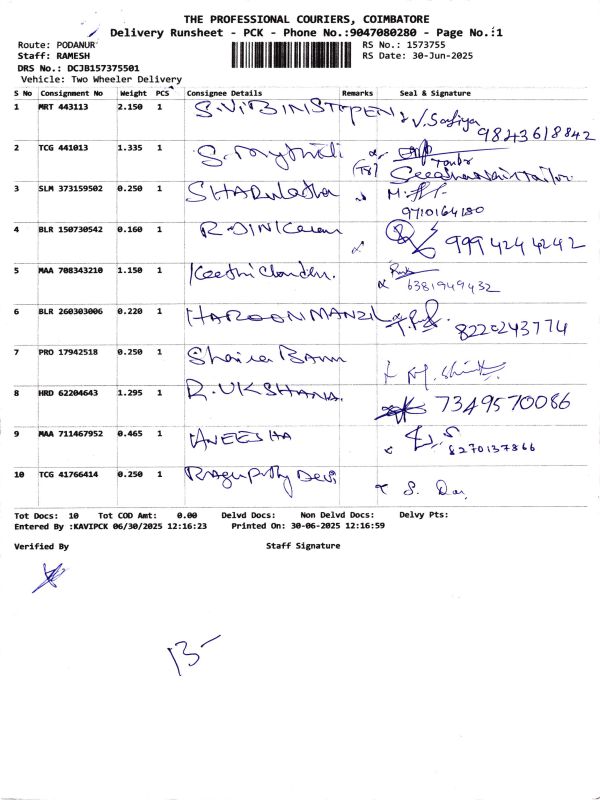 THE PROFESSIONAL COURIERS, COIMBATORE
Delivery Runsheet - PCK - Phone No.:9047080280 - Page No.:1
Route: PODANUR RS No.: 1573755
Staff: RAMESH RS Date: 30-Jun-2025
DRS No.: DCJB157375501
Vehicle: Two Wheeler Delivery
S No Consignment No Weight PCS Consignee Details Remarks Seal & Signature
1 MRT 443113 2.150 1 S.VIBINSTEPEN V. Safiya
9843618842
2 TCG 441013 1.335 1 S. Mythili
(T8)
3 SLM 373159502 0.250 1 SHARulatha
9710164180
4 BLR 150730542 0.160 1 R-DINIKaran 9994244242
5 MAA 708343210 1.150 1 Keethi Chandru.
6381949432
6 BLR 260303006 0.220 1 HAROON MANZIL
8220243774
7 PRO 17942518 0.250 1 Shaira BANU
8 HRD 62204643 1.295 1 R.UKSHANA. 7349570086
9 MAA 711467952 0.465 1 ANEESHA
8270137866
10 TCG 41766414 0.250 1 Ragupathy Devi
Tot Docs: 10 Tot COD Amt: 0.00 Delvd Docs: Non Delvd Docs: Delvy Pts:
Entered By :KAVIPCK 06/30/2025 12:16:23 Printed On: 30-06-2025 12:16:59
Verified By Staff Signature
13-